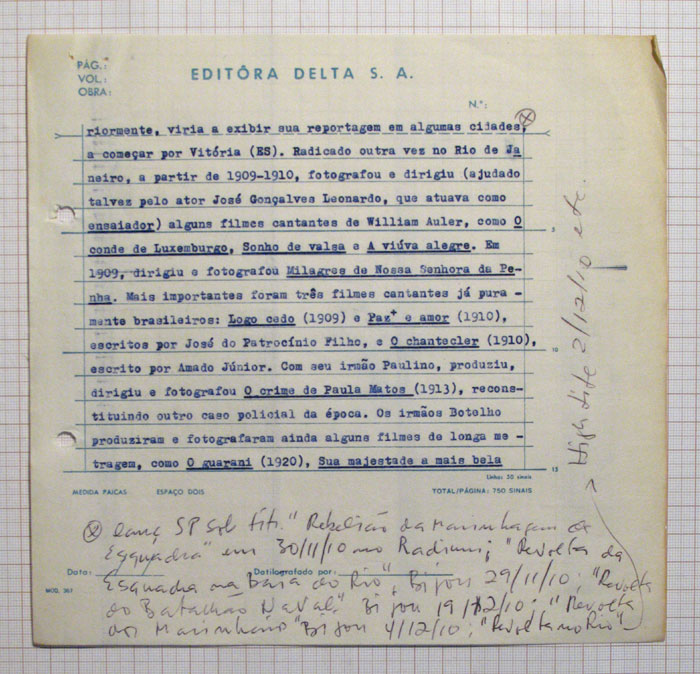 PÁG.:
VOL.:
OBRA:
EDITÔRA DELTA S. A.
N.º:
riormente, viria a exibir sua reportagem em algumas cidades,
a começar por Vitória (ES). Radicado outra vez no Rio de Ja
neiro, a partir de 1909-1910, fotografou e dirigiu (ajudado
talvez pelo ator José Gonçalves Leonardo, que atuava como
ensaiador) alguns filmes cantantes de William Auler, como O
5
conde de Luxemburgo, Sonho de valsa e A viúva alegre. Em
1909, dirigiu e fotografou Milagres de Nossa Senhora da Pe-
nha. Mais importantes foram três filmes cantantes já pura -
mente brasileiros: Logo cedo (1909) e Paz+ e amor (1910),
escritos por José do Patrocínio Filho, e O chantecler (1910),
10
escrito por Amado Júnior. Com seu irmão Paulino, produziu,
dirigiu e fotografou O crime de Paula Matos (1913), recons-
tituindo outro caso policial da época. Os irmãos Botelho
produziram e fotografaram ainda alguns filmes de longa me -
tragem, como O guarani (1920), Sua majestade a mais bela
15
Linha: 50 sinais
MEDIDA PAICAS ESPAÇO DOIS TOTAL/PÁGINA: 750 SINAIS
lanç SP sob tít. "Rebelião da Marinhagem da
Esquadra" em 30/11/10 no Radium; "Revolta da
Data: Datilografado por:
Esquadra na Baía do Rio", Bijou 29/11/10; "Revolta
MOD. 361
do Batalhão Naval" Bijou 19/12/10; "Revolta
dos Marinheiro" Bijou 4/12/10; "Revolta no Rio"
2/12/10 etc.